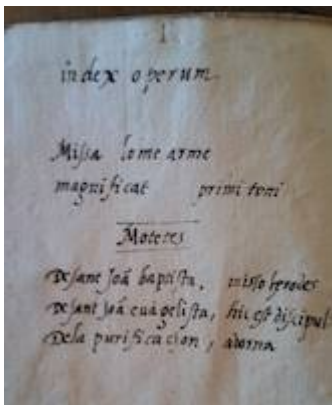 1
index operum.
Missa lome arme
magnificat primi toni
Motetes
De sant Joã baptista, misso herodes
De sant Joã euãgelista, hic est discipul
Dela purificacion, adorna